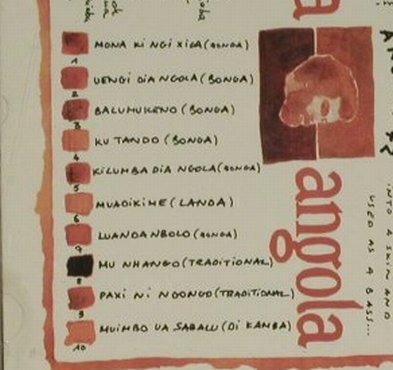 MONA KI NGI XICA (BONGA)
1
UENGI DIA NGOLA (BONGA)
2
BALUMUKENO (BONGA)
3
KU TANDO (BONGA)
4
KILUMBA DIA NGOLA (BONGA)
5
MUADIKIME (LANDA)
6
LUANDA NBOLO (BONGA)
7
MU NHANGO (TRADITIONAL)
8
PAXI NI NGONGO (TRADITIONAL)
9
MUIMBO UA SABALU (DI KANBA)
10
angola
INTO A SKIN AND
USED AS A BASS...